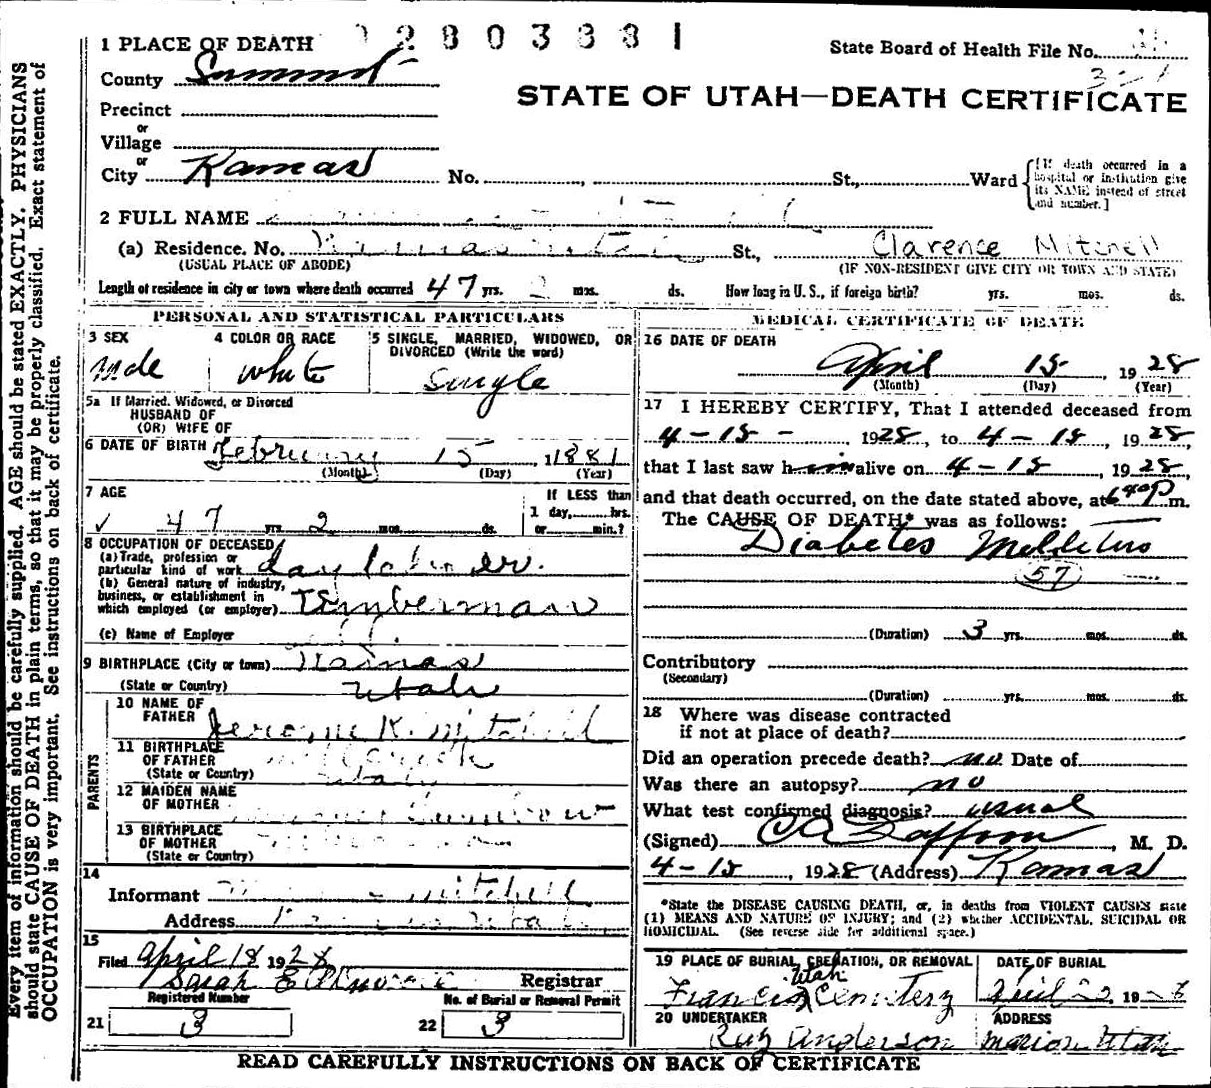 Every item of information should be carefully supplied. AGE should be stated EXACTLY. PHYSICIANS
should state CAUSE OF DEATH in plain terms, so that it may be properly classified. Exact statement of
OCCUPATION is very important. See instructions on back of certificate.
1 PLACE OF DEATH
State Board of Health File No.
County Summit
STATE OF UTAH—DEATH CERTIFICATE
Precinct
or
Village
or
City Kamas No. , St., Ward
[If death occurred in a hospital or institution give its NAME instead of street and number.]
2 FULL NAME
Clarence Mitchell
(a) Residence. No. Kamas Utah St.,
(USUAL PLACE OF ABODE) (IF NON-RESIDENT GIVE CITY OR TOWN AND STATE)
Length of residence in city or town where death occurred 47 yrs. 2 mos. ds. How long in U. S., if foreign birth? yrs. mos. ds.
PERSONAL AND STATISTICAL PARTICULARS
3 SEX 4 COLOR OR RACE 5 SINGLE, MARRIED, WIDOWED, OR DIVORCED (Write the word)
Male White Single
5a If Married, Widowed, or Divorced
HUSBAND OF
(OR) WIFE OF
6 DATE OF BIRTH February 15, 1881
(Month) (Day) (Year)
7 AGE If LESS than
47 yrs. 2 mos. ds. 1 day, hrs.
or min.?
8 OCCUPATION OF DECEASED
(a) Trade, profession or
particular kind of work day laborer.
(b) General nature of industry,
business, or establishment in
which employed (or employer) Timberman
(c) Name of Employer
9 BIRTHPLACE (City or town) Kamas
(State or Country) Utah
PARENTS
10 NAME OF
FATHER Jerome K. Mitchell
11 BIRTHPLACE
OF FATHER
(State or Country) Utah
12 MAIDEN NAME
OF MOTHER
13 BIRTHPLACE
OF MOTHER
(State or Country)
14
Informant Mitchell
Address Kamas Utah
15
Filed April 18 1928
Sarah E Registrar
Registered Number No. of Burial or Removal Permit
21 3 22 3
MEDICAL CERTIFICATE OF DEATH
16 DATE OF DEATH
April 18, 1928
(Month) (Day) (Year)
17 I HEREBY CERTIFY, That I attended deceased from
4-18-, 1928, to 4-18, 1928,
that I last saw him alive on 4-18, 1928,
and that death occurred, on the date stated above, at 6 40 P m.
The CAUSE OF DEATH* was as follows:
Diabetes Mellitus
57
(Duration) 3 yrs. mos. ds.
Contributory
(Secondary)
(Duration) yrs. mos. ds.
18 Where was disease contracted
if not at place of death?
Did an operation precede death? no Date of
Was there an autopsy? no
What test confirmed diagnosis? usual
(Signed) , M. D.
4-18, 1928 (Address) Kamas
*State the DISEASE CAUSING DEATH, or, in deaths from VIOLENT CAUSES state
(1) MEANS AND NATURE OF INJURY; and (2) whether ACCIDENTAL, SUICIDAL OR
HOMICIDAL. (See reverse side for additional space.)
19 PLACE OF BURIAL, CREATION, OR REMOVAL DATE OF BURIAL
Utah
Francis Cemetery April 20 1928
20 UNDERTAKER ADDRESS
Ray Anderson Marion Utah
READ CAREFULLY INSTRUCTIONS ON BACK OF CERTIFICATE